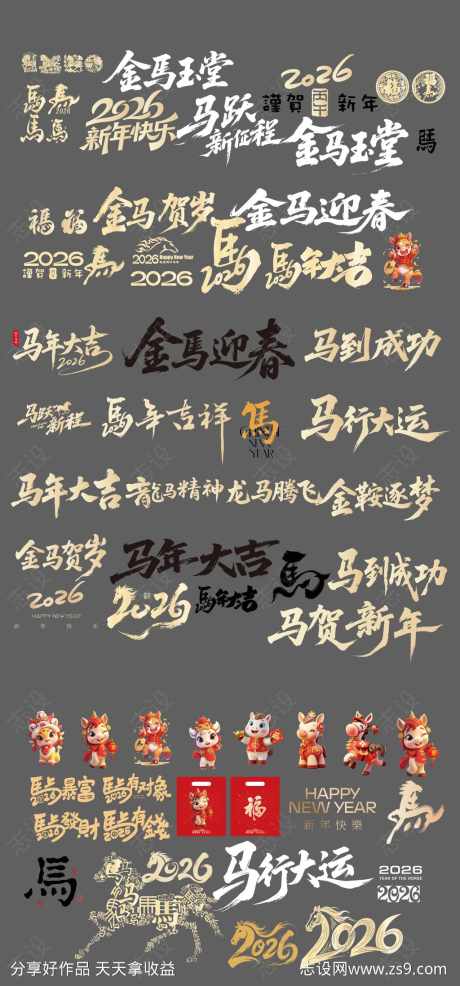 金马玉堂
2026
馬
馬
馬
馬
2026
2026
新年快乐
马跃
新征程
謹賀
新年
福
金马玉堂
馬
福
福
金马贺岁
金马迎春
2026
謹賀
新年
馬
2026 Happy New Year
2026
馬
2026
馬年大吉
2026
马年大吉
2026
金馬迎春
马到成功
马跃
新程
馬年吉祥
馬
YEAR
马行大运
马年大吉
龍马精神
龙马腾飞
金鞍逐梦
金马贺岁
2026
HAPPY NEW YEAR
新年快乐
马年大吉
2026
馬年大吉
馬
马到成功
马贺新年
馬上暴富
2026
馬上有对象
2026
馬上發財
2026
馬上有錢
2026
福
HAPPY
NEW YEAR
新年快樂
馬
馬
2026
马行大运
2026
YEAR OF THE HORSE
2026
2026
2026
分享好作品 天天拿收益
志设网www.zs9.com